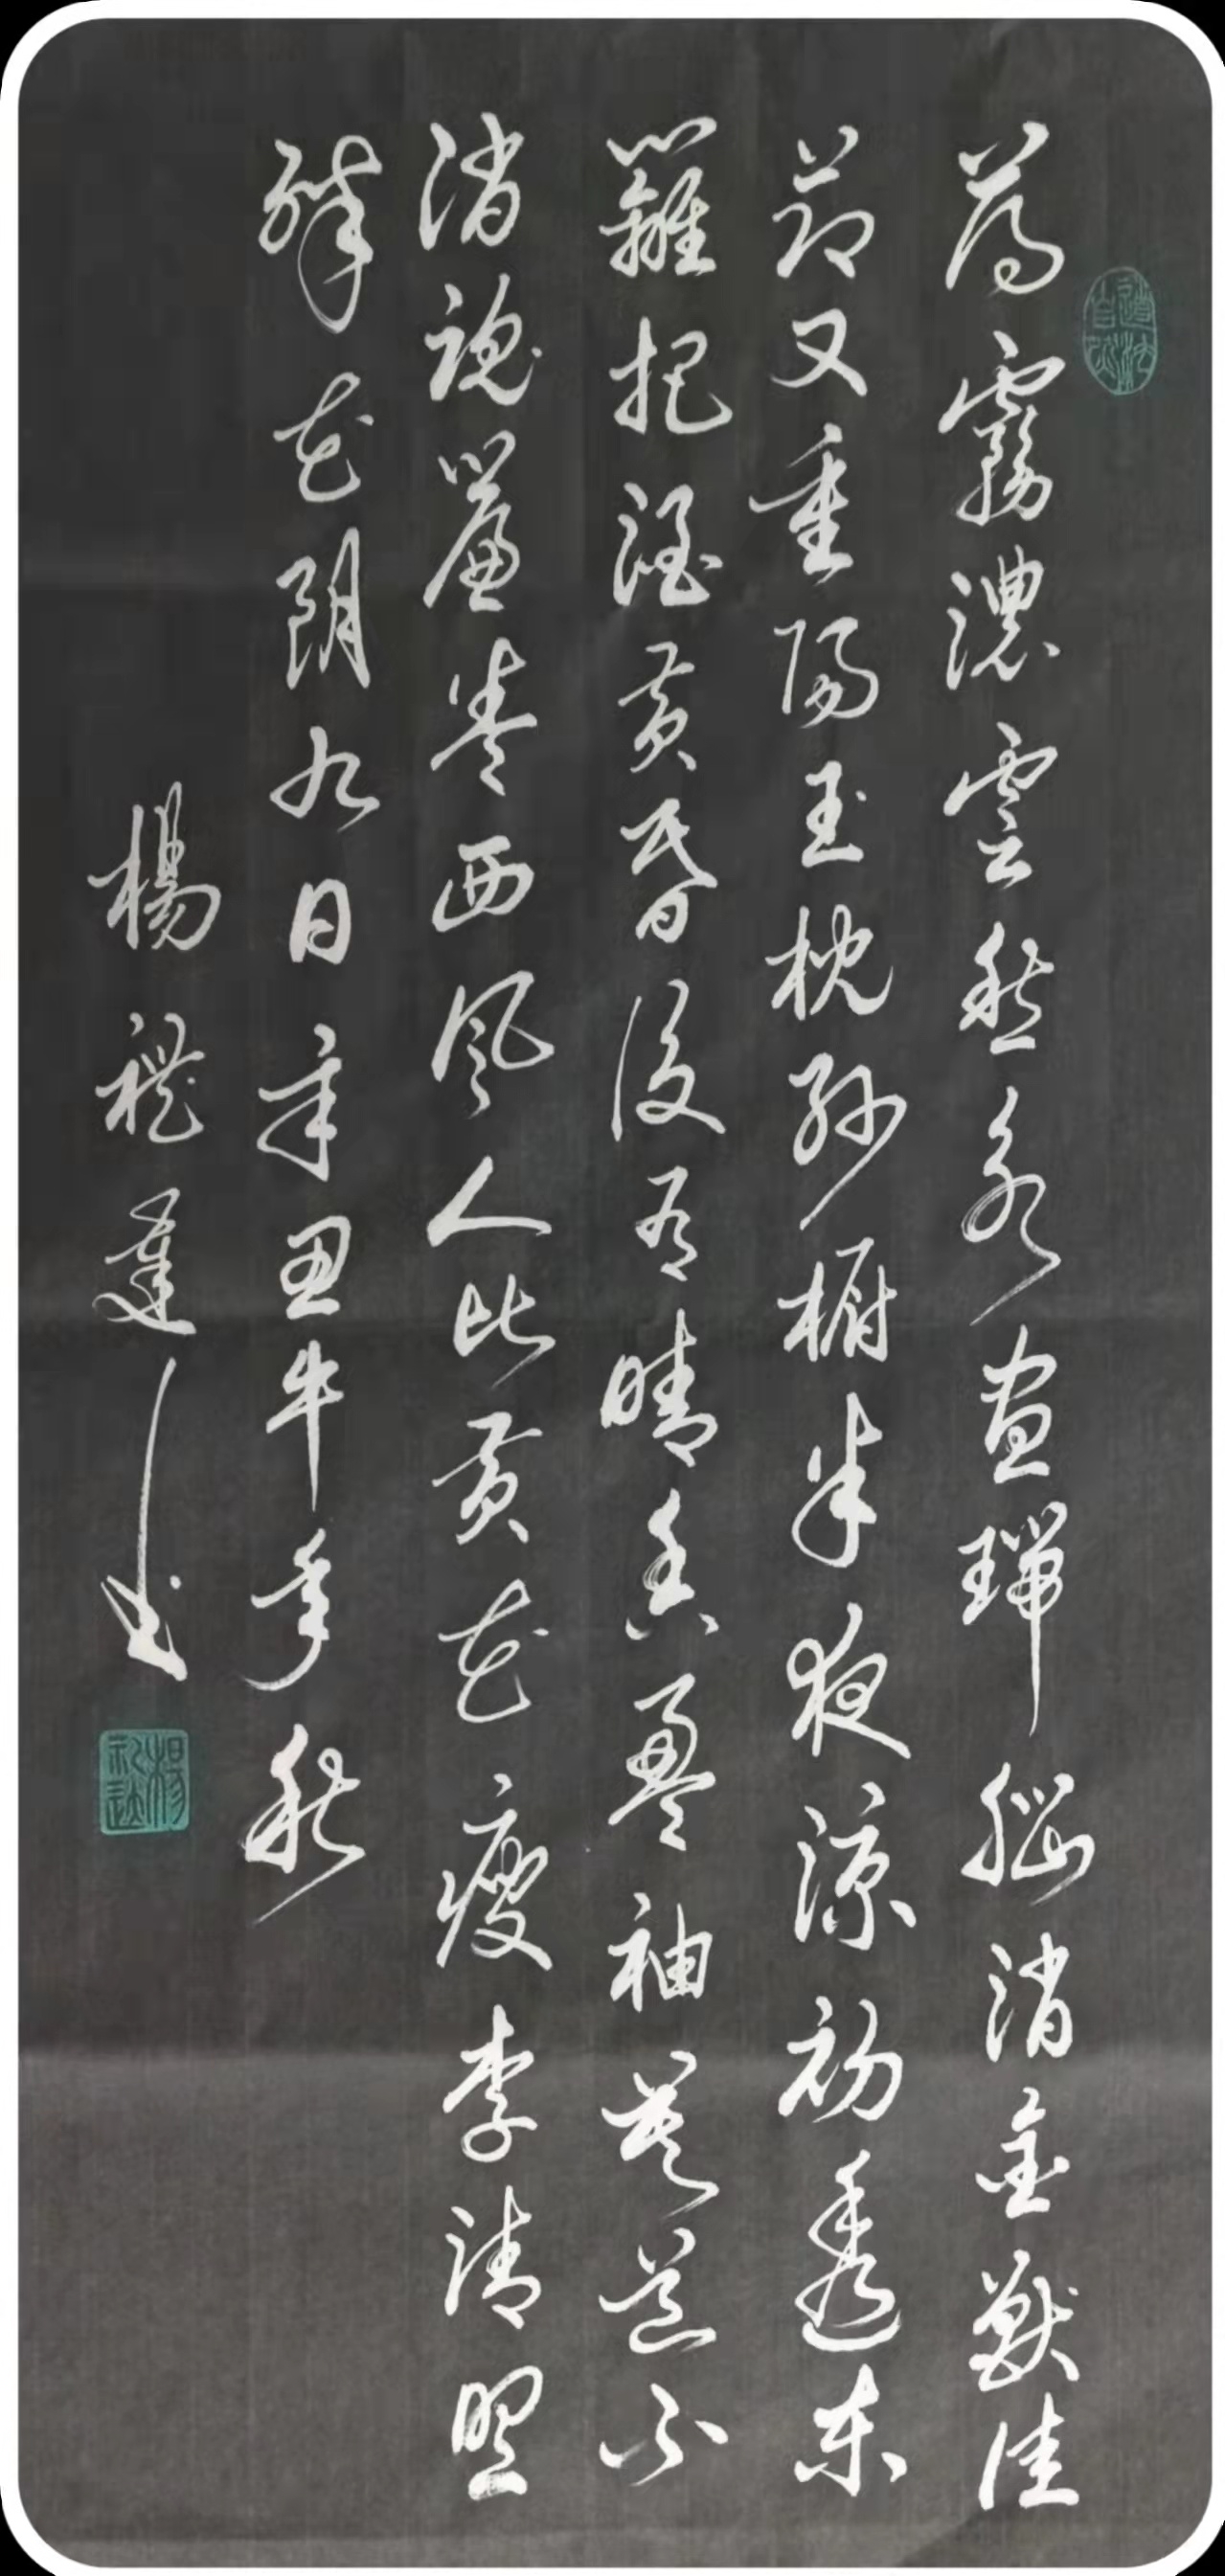 道法自然
薄霧濃雲愁永晝瑞腦消金獸佳
節又重陽玉枕紗櫥半夜涼初透東
籬把酒黃昏後有暗香盈袖莫道不
消魂簾卷西風人比黃花瘦李清照
醉花陰九日辛丑牛年秋
楊禮達书
楊礼达